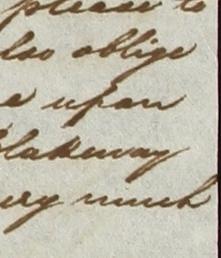 please to
also oblige
e upon
Blakeway
ery much